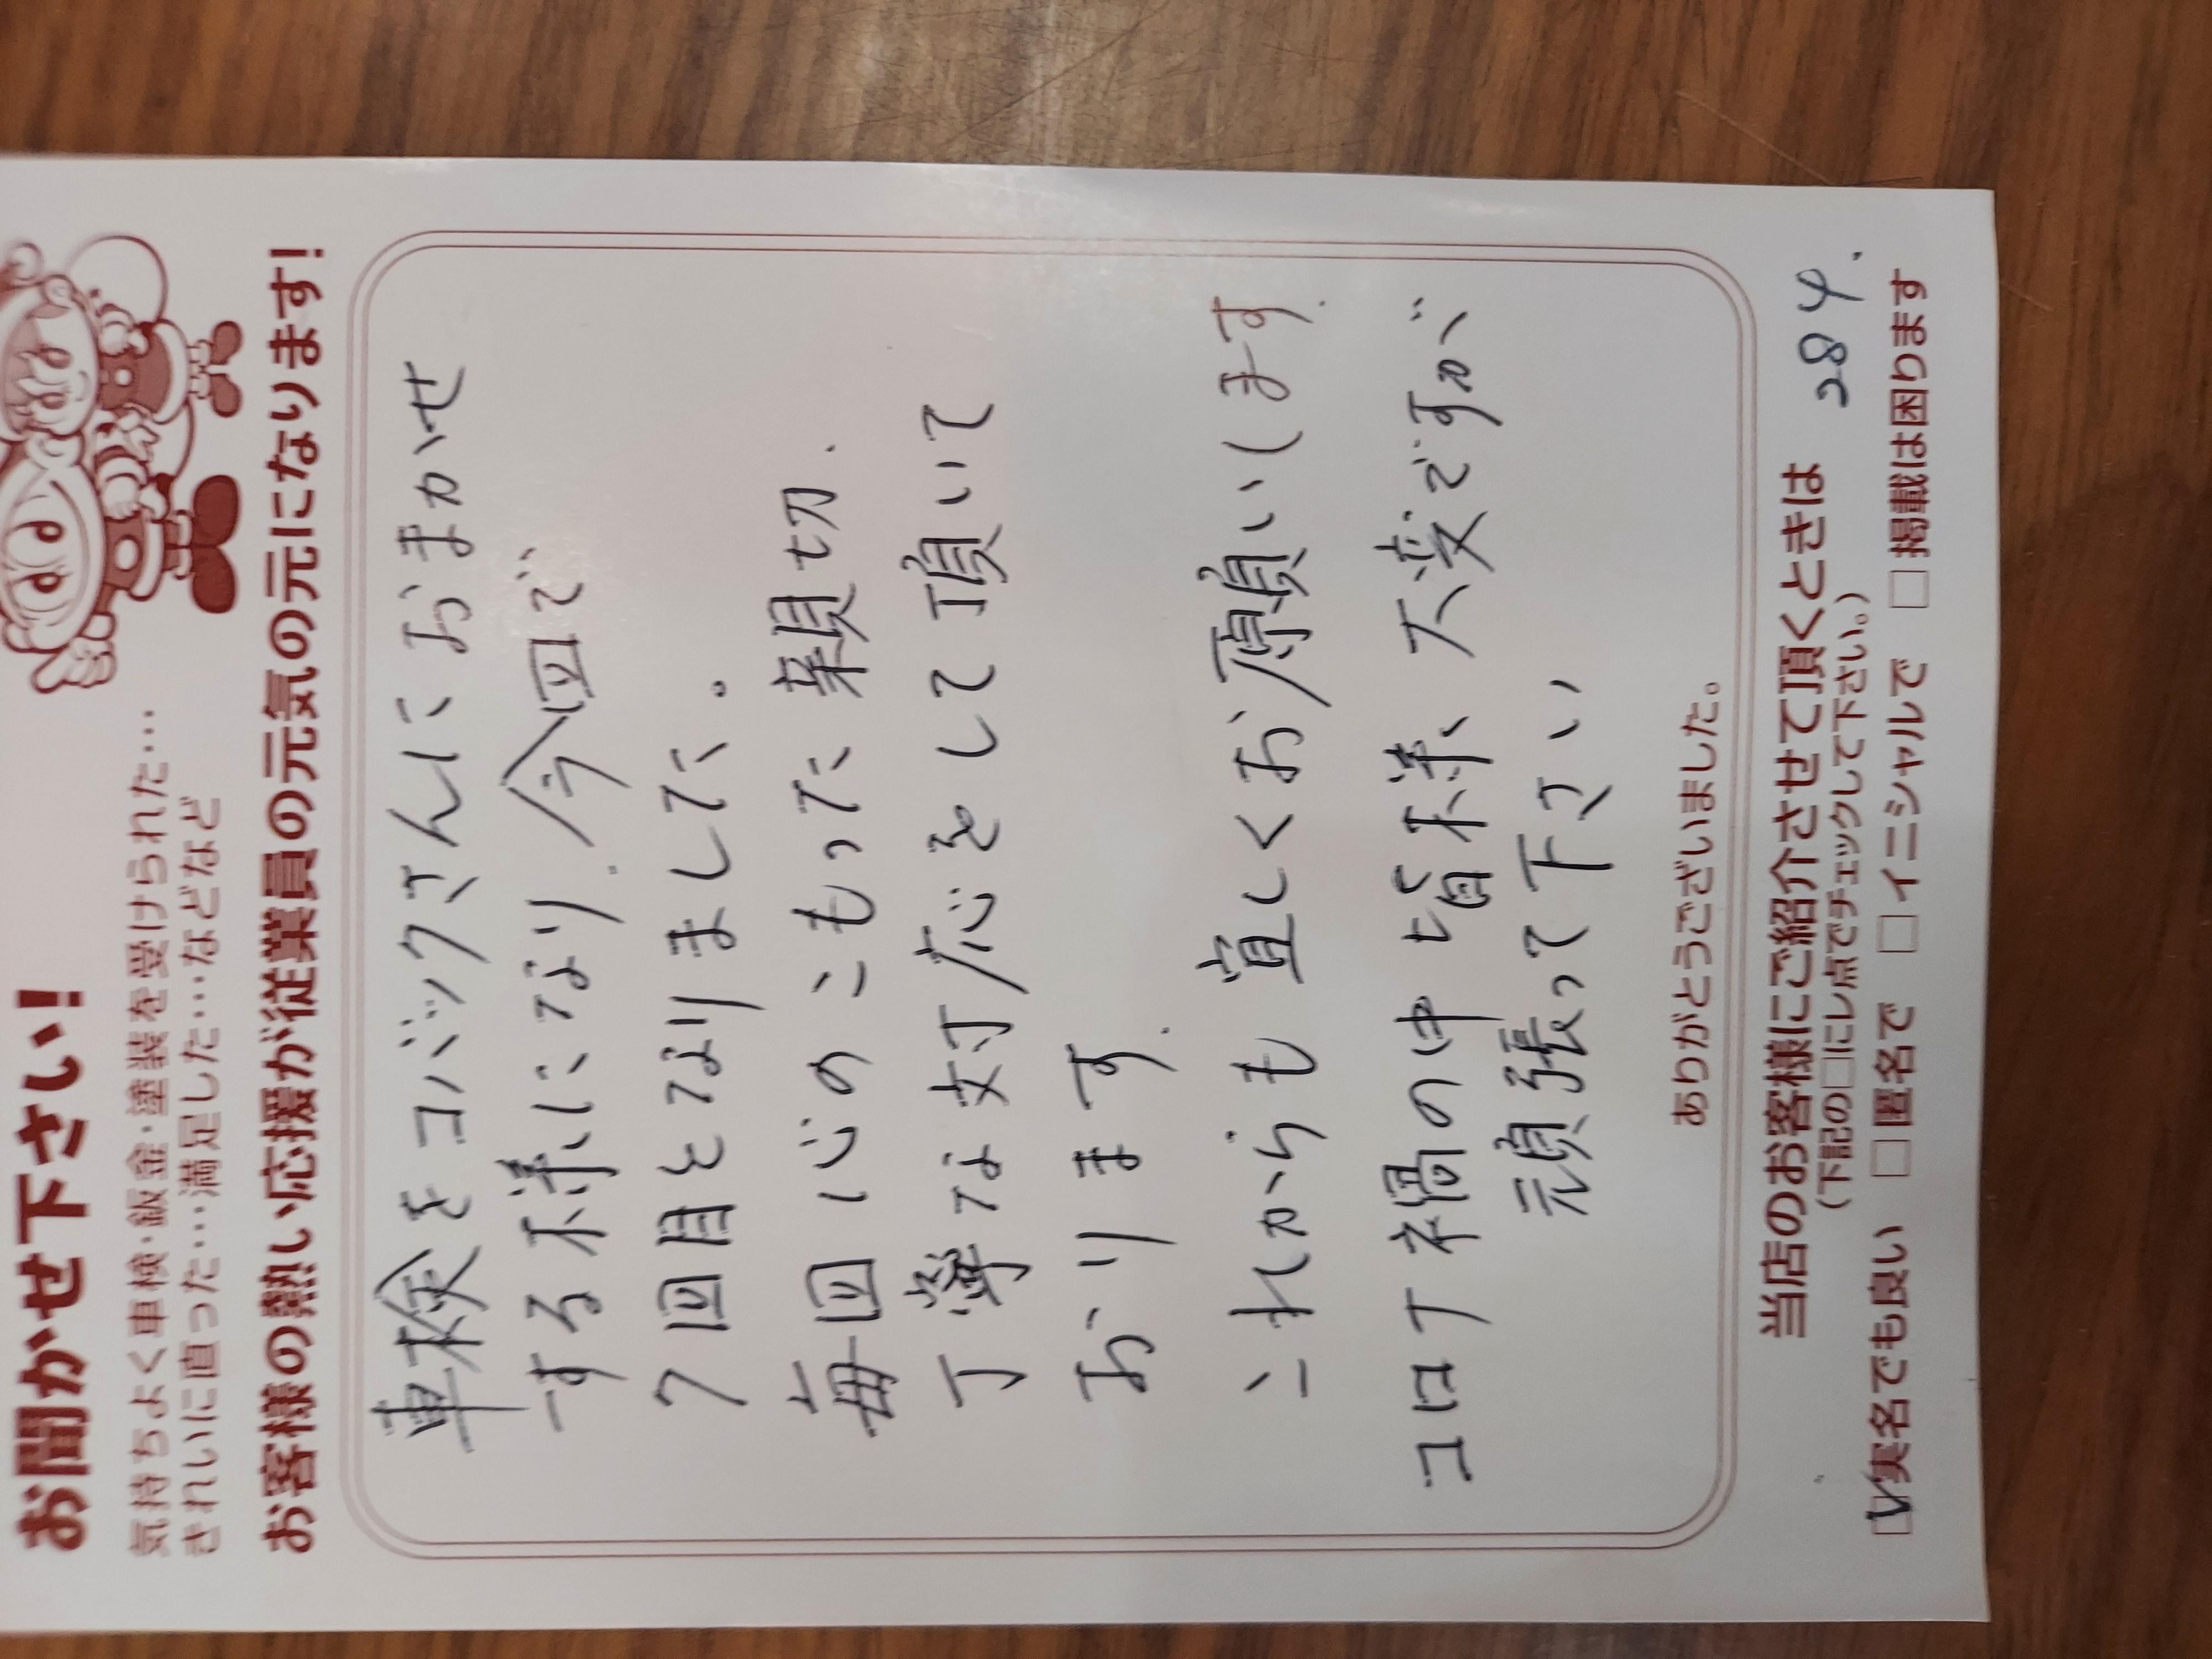 お聞かせ下さい!
気持ちよく車検・鈑金・塗装を受けられた…
きれいに直った…満足した…などなど
お客様の熱い応援が従業員の元気の元になります!
車検をコバックさんにおまかせ
する様になり、今回で
7回目となりました。
毎回心のこもった親切、
丁寧な対応をして頂いて
おります。
これからも宜しくお願いします
コロナ禍の中皆様大変ですが
元頑張って下さい
ありがとうございました。
当店のお客様にご紹介させて頂くときは
284.
(下記の□にレ点でチェックして下さい。)
☑実名でも良い □匿名で □イニシャルで □掲載は困ります